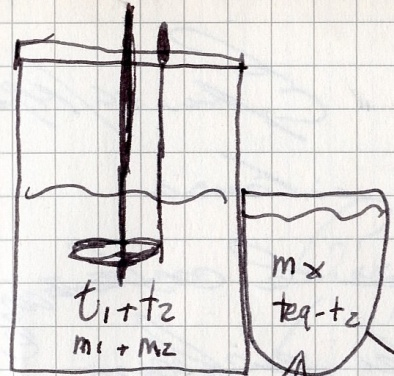 t₁+t₂
m₁+m₂
mx
teq-t₂